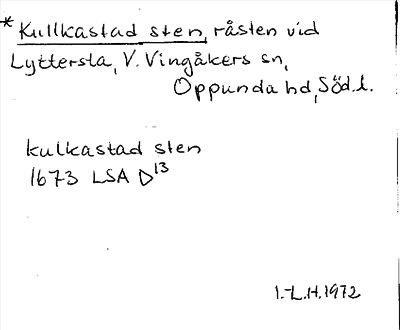 * Kullkastad sten, råsten vid
Lyttersta, V. Vingåkers sn,
Oppunda hd, Söd.l.
kulkastad sten
1673 LSA D13
I.-L.H. 1972